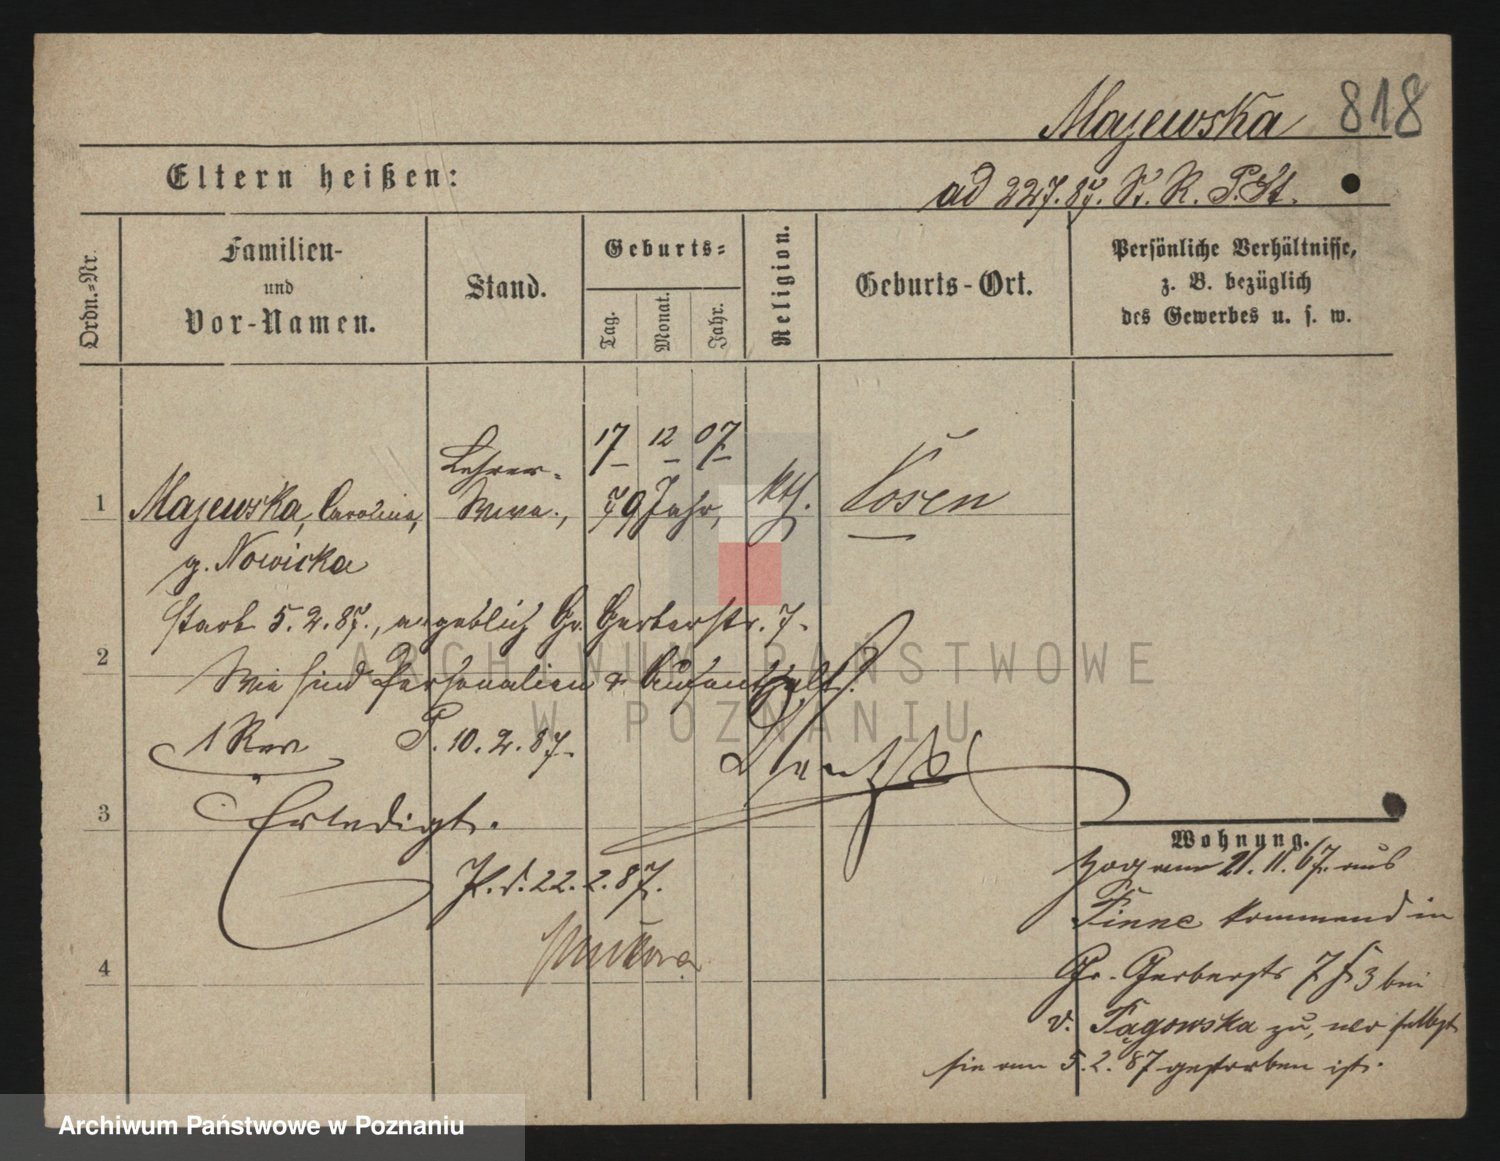 Majewska 818
Eltern heißen:
ad 227.87. St. R. P. St.
Ordn.-Nr.
Familien-
und
Vor-Namen.
Stand.
Geburts-
Tag.
Monat.
Jahr.
Religion.
Geburts-Ort.
Persönliche Verhältnisse,
z. B. bezüglich
des Gewerbes u. s. w.
17 12 07
Lehrer-
1 Majewska, Carolina, Wwe., 79 Jahr, kth. Posen
g. Nowicka
starb 5.2.87., angeblich Gr. Gerberstr. 7.
2
Wie sind Personalien & Aufenthalt?
1 Rev P. 10.2.87.
3
Erledigt.
P. d. 22.2.87.
4
Wohnung.
zog am 21.11.67. aus
Pinne kommend in
Gr. Gerberstr 7 bei
v. Fągowska zu, wo selbst
sie am 5.2.87 gestorben ist.
ARCHIWUM PAŃSTWOWE
W POZNANIU
Archiwum Państwowe w Poznaniu